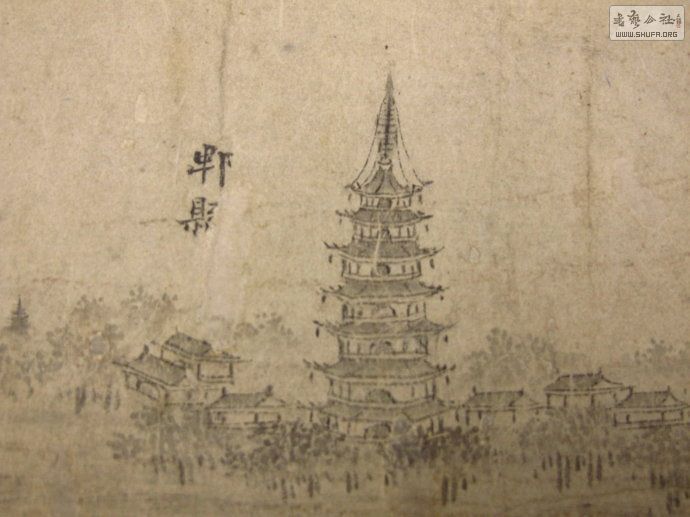 郫縣
書藝公社
WWW.SHUFA.ORG